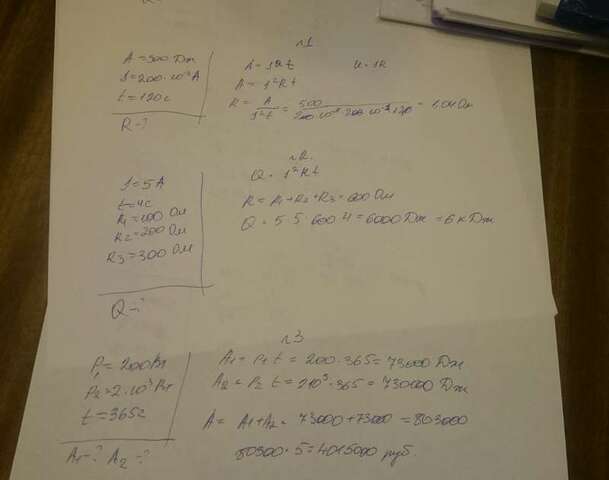 №1
A = 500 Дж
I = 200·10⁻³А
t = 120с
R-?
A = I U t
U = IR
A = I²Rt
R = A / I²t = 500 / 200·10⁻³·200·10⁻³·120 = 1,04 Ом
№2.
I = 5 А
t = 4с
R1 = 100 Ом
R2 = 200 Ом
R3 = 300 Ом
Q-?
Q = I²Rt
R = R1 + R2 + R3 = 600 Ом
Q = 5·5·600·4 = 6000 Дж = 6 кДж
№3
P1 = 200Вт
P2 = 2·10³Вт
t = 365
A1-? A2-?
A1 = P1 t = 200·365 = 73000 Дж
A2 = P2 t = 2·10³·365 = 730000 Дж
A = A1 + A2 = 73000 + 73000 = 803000
80300·5 = 4015000 руб.